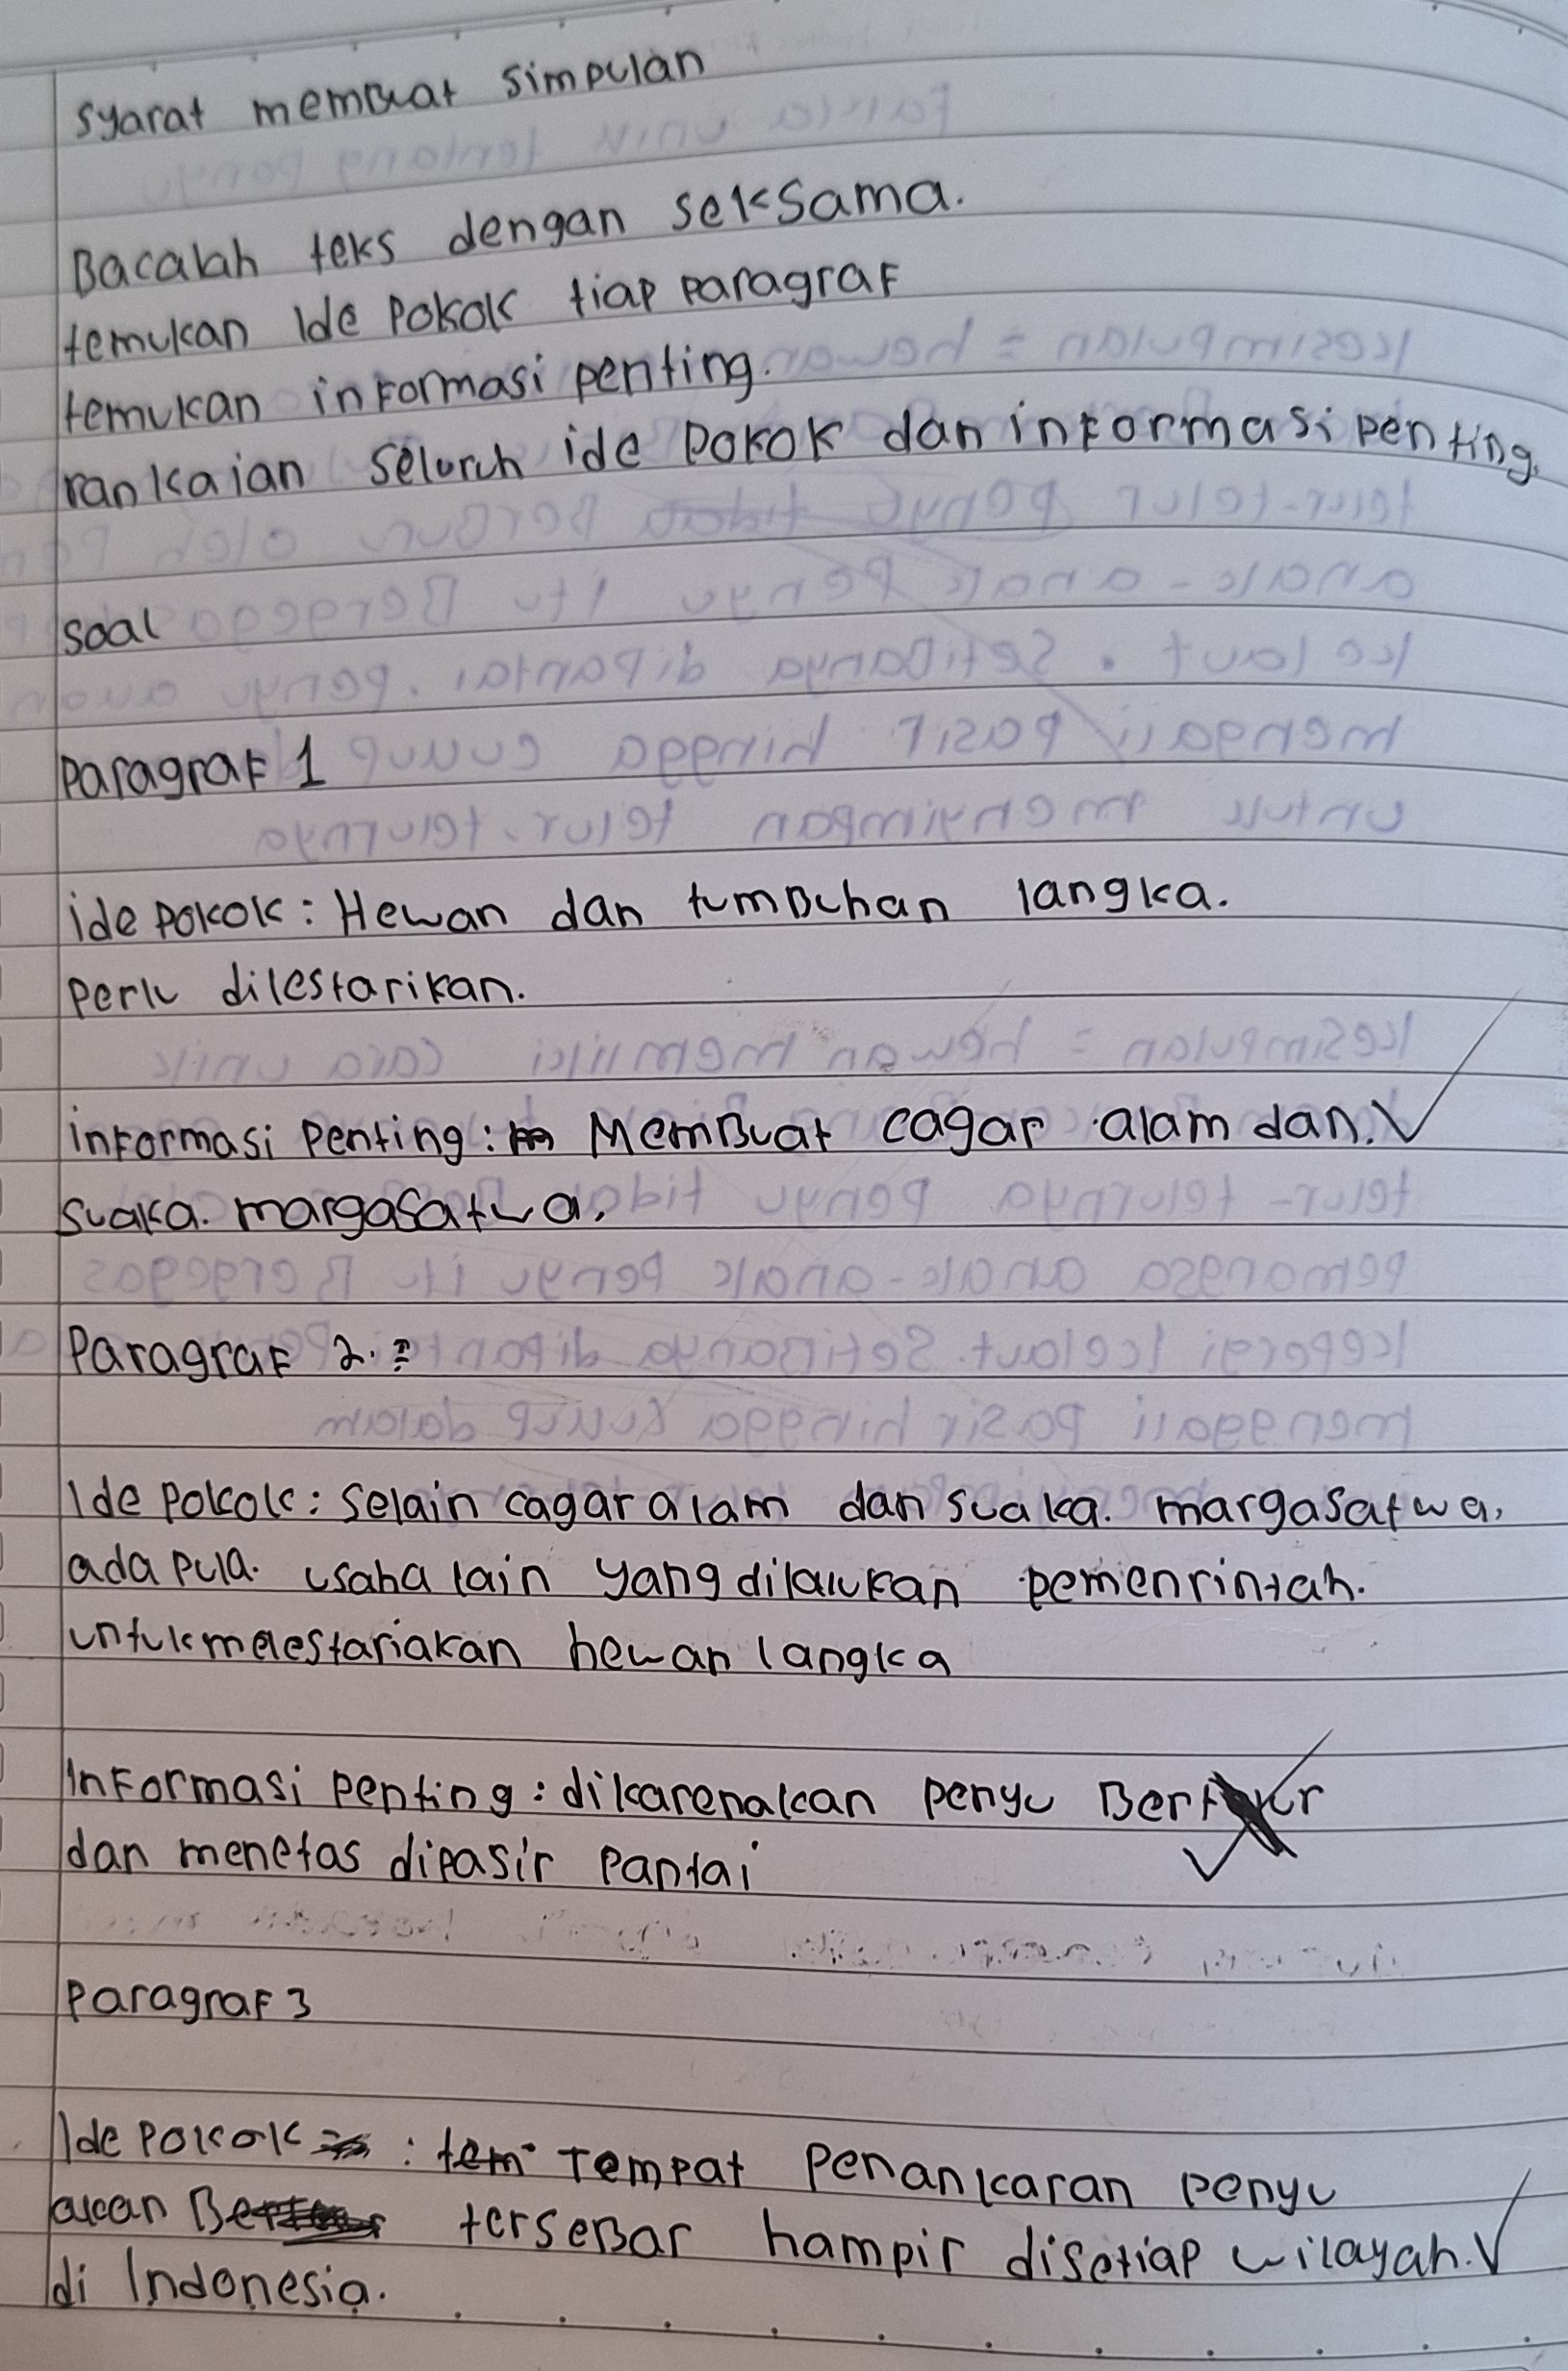 syarat membuat simpulan
Bacalah teks dengan seksama.
temukan Ide Pokok tiap paragraf
temukan informasi penting.
rankaian seluruh ide pokok dan informasi penting.
soal
Paragraf 1
ide pokok: Hewan dan tumbuhan langka.
Perlu dilestarikan.
informasi Penting: Membuat cagar alam dan.
suaka. margasatwa.
Paragraf 2.
Ide pokok: Selain cagar alam dan suaka. margasatwa,
ada pula. usaha lain yang dilakukan pemenrintah.
untuk melestariakan hewan langka
Informasi penting: dikarenakan penyu
dan menetas dipasir Pantai
Paragraf 3
Ide Pokok : Tempat Penankaran penyu
akan tersebar hampir disetiap wilayah.
di Indonesia.